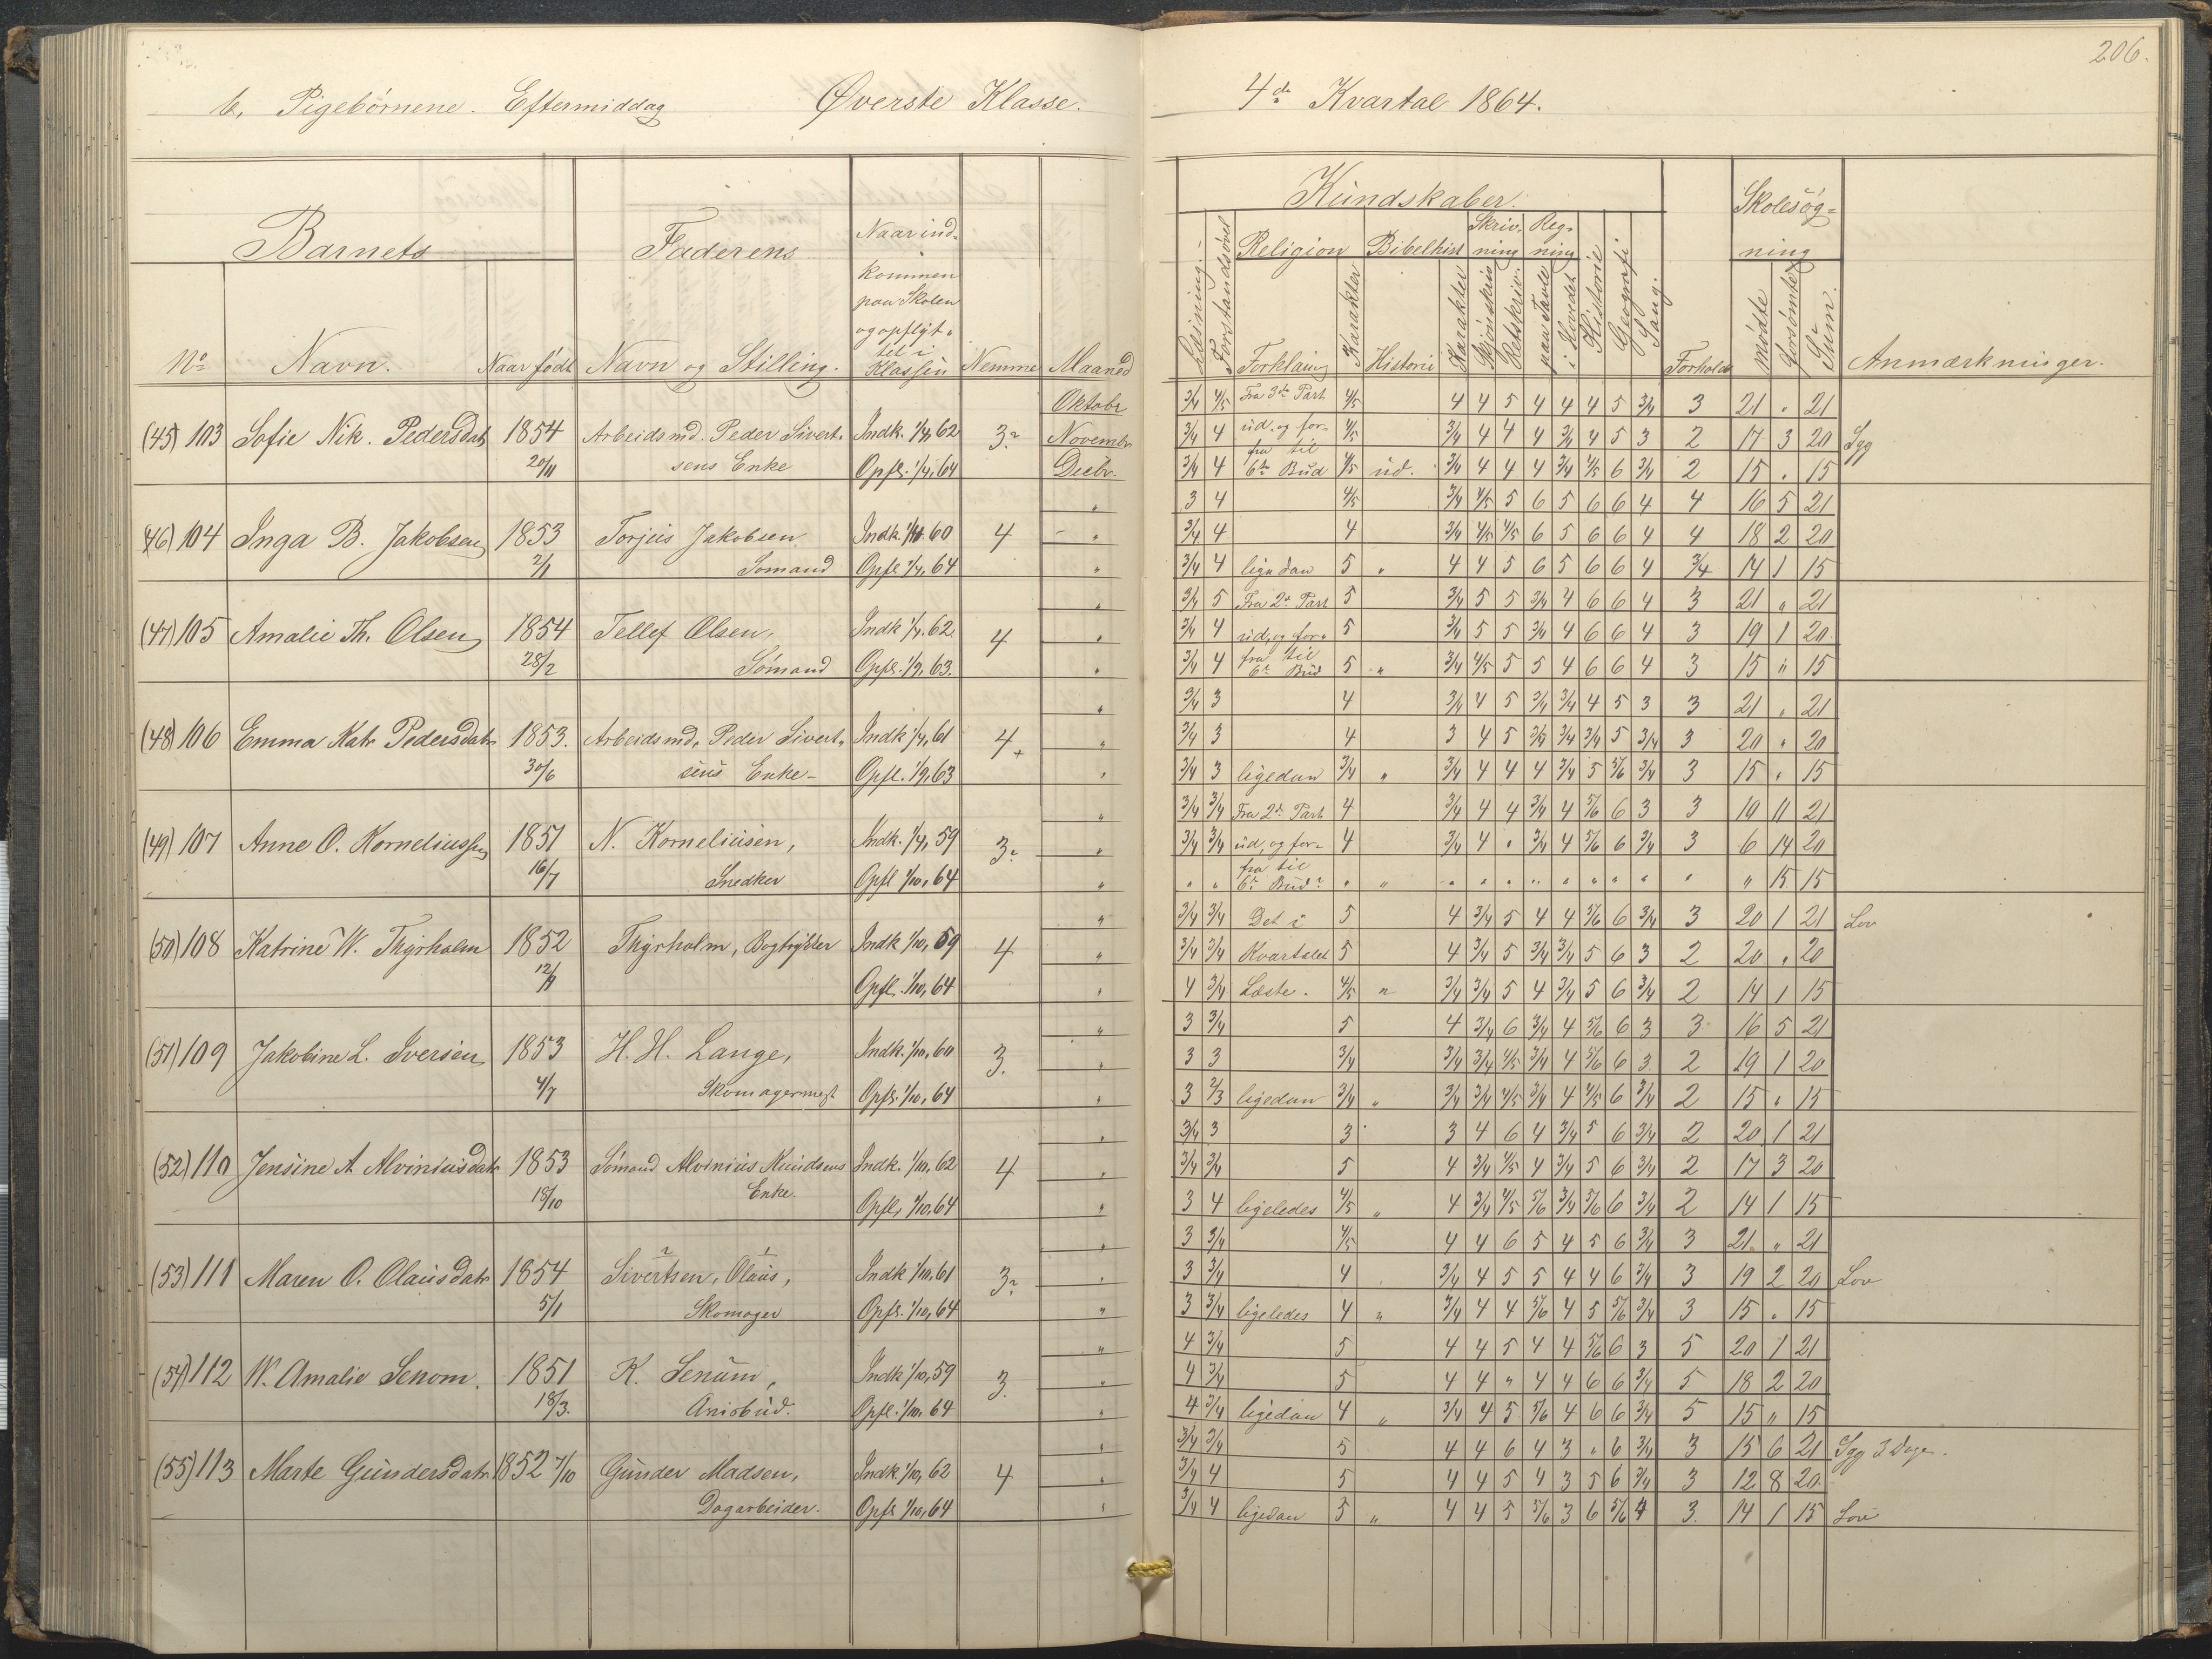 206.
b, Pigebørnene. Eftermiddag Øverste Klasse. 4de Kvartal 1864.
Barnets Faderens Naar ind-
kommen
paa Skolen
og opflyt-
tet i
Klassen
No Navn. Naar født Navn og Stilling. Nemme Maaned
Kundskaber. Skolesøg-
ning
Læsning. Forstandsøvel Religion Bibelhist Skriv-
ning Reg-
ning Historie Geografi Sang.
Forklaring Karakter Historie Karakter Skjønskriv Retskriv. paa Tavle i Hovedet Forhold mødte forsømte Sum. Anmærkninger.
Oktobr 3/4 4/5 Fra 3die Part 4/5 4 4 5 4 4 4 5 3/4 3 21 " 21
(45) 103 Sofie Nik. Pedersdatr 1854 Arbeidsmd. Peder Sivert- Indk. 1/4, 62 3? Novembr 3/4 4 ud. og for- 4/5 3/4 4 4 4 3/4 4 5 3 2 17 3 20 Syg
fra til
20/11 sens Enke Opfl. 1/4, 64 Decbr. 3/4 4 6te Bud 4/5 ud. 3/4 4 4 4 3/4 4/5 6 3/4 2 15 " 15
" 3 4 4/5 3/4 4/5 5 6 5 6 6 4 4 16 5 21
(46) 104 Inga B. Jakobsen 1853 Torjus Jakobsen Indk. 60 4 " 3/4 4 4 3/4 4/5 4/5 6 5 6 6 4 4 18 2 20
2/1 Sømand Opfl. 1/4, 64 " 3/4 4 ligedan 5 " 4 4 5 6 5 6 6 4 3/4 14 1 15
" 3/4 5 Fra 2d Part 5 3/4 5 5 3/4 4 6 6 4 3 21 " 21
(47) 105 Amalie Th. Olsen 1854 Tellef Olsen, Indk 1/4. 62 4 " 3/4 4 ud, og for- 5 3/4 5 5 3/4 4 6 6 4 3 19 1 20
fra til
28/2 Sømand Opfl. 1/9, 63. " 3/4 4 6te Bud 5 " 3/4 4/5 5 5 4 6 6 4 3 15 " 15
" 3/4 3 4 3/4 4 5 3/4 3/4 4 5 3 3 21 " 21
(48) 106 Emma Katr Pedersdatr 1853. Arbeidsmd. Peder Sivert- Indk 1/4, 61 4+ " 3/4 3 4 3 4 5 3/4 3/4 3/4 5 3/4 3 20 " 20
30/6 sens Enke - Opfl. 1/9, 63 " 3/4 3 ligedan 3/4 " 3/4 4 4 4 3/4 5 5/6 3/4 3 15 " 15
" 3/4 3/4 Fra 2d Part 4 3/4 4 4 3/4 4 5/6 6 3 3 10 11 21
(49) 107 Anne O. Korneliussen 1851 N. Korneliusen, Indk. 1/4, 59 3? " 3/4 3/4 ud, og for- 4 3/4 4 " 3/4 4 5/6 6 3/4 3 6 14 20
fra til
16/7 Snedker Opfl 1/10, 64 " " " 6te Bud? " " " " " " " " " " " " 15 15
" 3/4 3/4 Det i 5 4 3/4 5 4 4 5/6 6 3/4 3 20 1 21 Lov
(50) 108 Katrine W. Thyrholm 1852 Thyrholm, Bogtrykker Indk 1/10, 59 4 " 3/4 3/4 Kvartalet 5 4 3/4 5 3/4 3/4 5 6 3 2 20 " 20
Opfl. 1/10, 64 " 4 3/4 Læste. 4/5 " 3/4 3/4 5 4 3/4 5 6 3/4 2 14 1 15
" 3 3/4 5 4 3/4 6 3/4 4 5/6 6 3 3 16 5 21
(51) 109 Jakobine L. Iversen 1853 H. H. Lange, Indk. 1/10, 60 3. " 3 3 3/4 3/4 3/4 4/5 3/4 4 5/6 6 3 2 19 1 20
4/7 Skomagermest Opfl. 1/10, 64 " 3 2/3 ligedan 3/4 " 3/4 3/4 4/5 3/4 4 4/5 6 3/4 2 15 " 15
" 3/4 3 3 3 4 6 4 3/4 5 6 3/4 2 20 1 21
(52) 110 Jensine A. Alviniusdatr 1853 Sømand Alvinius Knudsens Indk. 1/10, 62 4 " 3/4 3/4 5 4 3/4 4/5 4 3/4 5 6 3/4 2 17 3 20
18/10 Enke. Opfl, 1/10, 64 " 3 4 ligeledes 4/5 " 4 3/4 4/5 5/6 3/4 5/6 6 3/4 2 14 1 15
" 3 3/4 4/5 4 4 6 5 4 5 6 3/4 3 21 " 21
(53) 111 Maren O. Olausdatr 1854 Sivertsen, Olaus, Indk 1/10, 61 3? " 3 3/4 4 3/4 4 5 5 4 4 6 3/4 3 19 2 20 Lov
5/1 Skomager Opfl. 1/10, 64 " 3 3/4 ligeledes 4 " 3/4 4 4 5/6 4 5 5/6 3/4 3 15 " 15
" 4 3/4 5 4 4 5 4 4 5/6 6 3 5 20 1 21
(54) 112 W. Amalie Senom. 1851 K. Senum, Indk 1/10, 59 3. " 4 3/4 5 4 4 " 4 4 6 6 3/4 5 18 2 20
18/3. Avisbud. Opfl. 1/10, 64 " 4 3/4 ligedan 4 " 3/4 4 5 5/6 4 6 6 3/4 5 15 " 15
" 3/4 3/4 5 4 4 6 4 3 " 6 3/4 3 15 6 21 Syg 3 Dage.
(55) 113 Marte Gundersdatr 1852 7/10 Gunder Madsen, Indk 1/10, 62 4 " 3/4 4 5 4 4 5 4 3 5 6 3/4 3 12 8 20
Dagarbeider. Opfl 1/10, 64 " 3/4 4 ligedan 5 " 4 4 5 5/6 3 6 5/6 4 3. 14 1 15 Lov